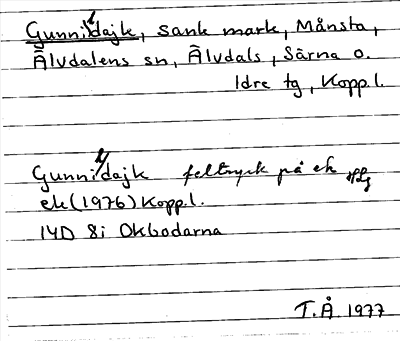 Gunnildajk, sank mark, Månsta,
Älvdalens sn, Älvdals, Särna o.
Idre tg, Kopp.l.
Gunnildajk feltryck på ek
ek (1976) Kopp.l.
14D 8i Okbodarna
T.Å 1977